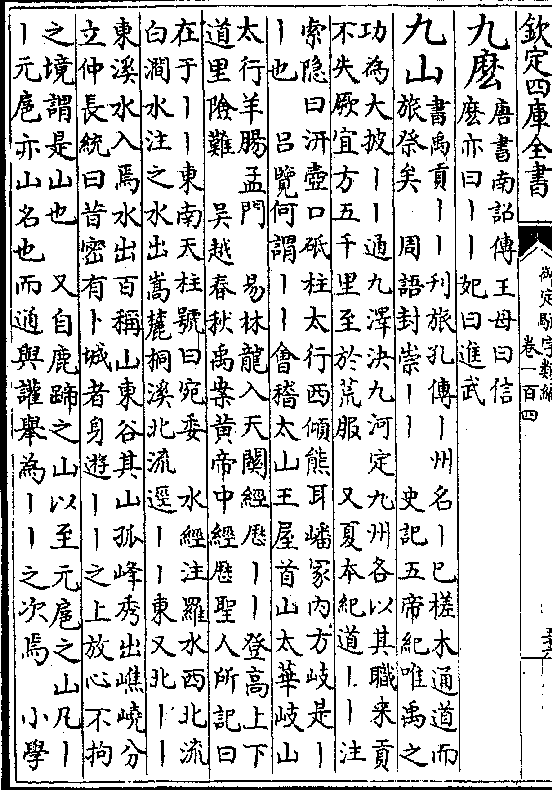 欽定四庫全書
御定駢字類編
卷一百四
九麽
唐書南詔傳王母曰信
麽亦曰丨丨妃曰進武
九山
書禹貢丨丨刊旅孔傳丨州名丨已槎木通道而
旅祭矣　周語封崇丨丨　史記五帝紀唯禹之
功為大披丨丨通九澤決九河定九州各以其職来貢
不失厥宜方五千里至於荒服　又夏本紀道丨丨注
索隐曰汧壺口砥柱太行西傾熊耳嶓冢内方岐是丨
丨也　吕覽何謂丨丨會稽太山王屋首山太華岐山
太行羊腸孟門　易林龍入天關經歴丨丨登高上下
道里險難　吴越春秋禹案黄帝中經歴聖人所記曰
在于丨丨東南天柱號曰宛委　水經注羅水西北流
白澗水注之水出嵩麓桐溪北流逕丨丨東又北丨丨
東溪水入焉水出百稱山東谷其山孤峰秀出嶕嶢分
立仲長統曰昔密有卜城者身遊丨丨之上放心不拘
之境謂是山也　又自鹿蹄之山以至元扈之山凡丨
丨元扈亦山名也而通與讙舉為丨丨之次焉　小學